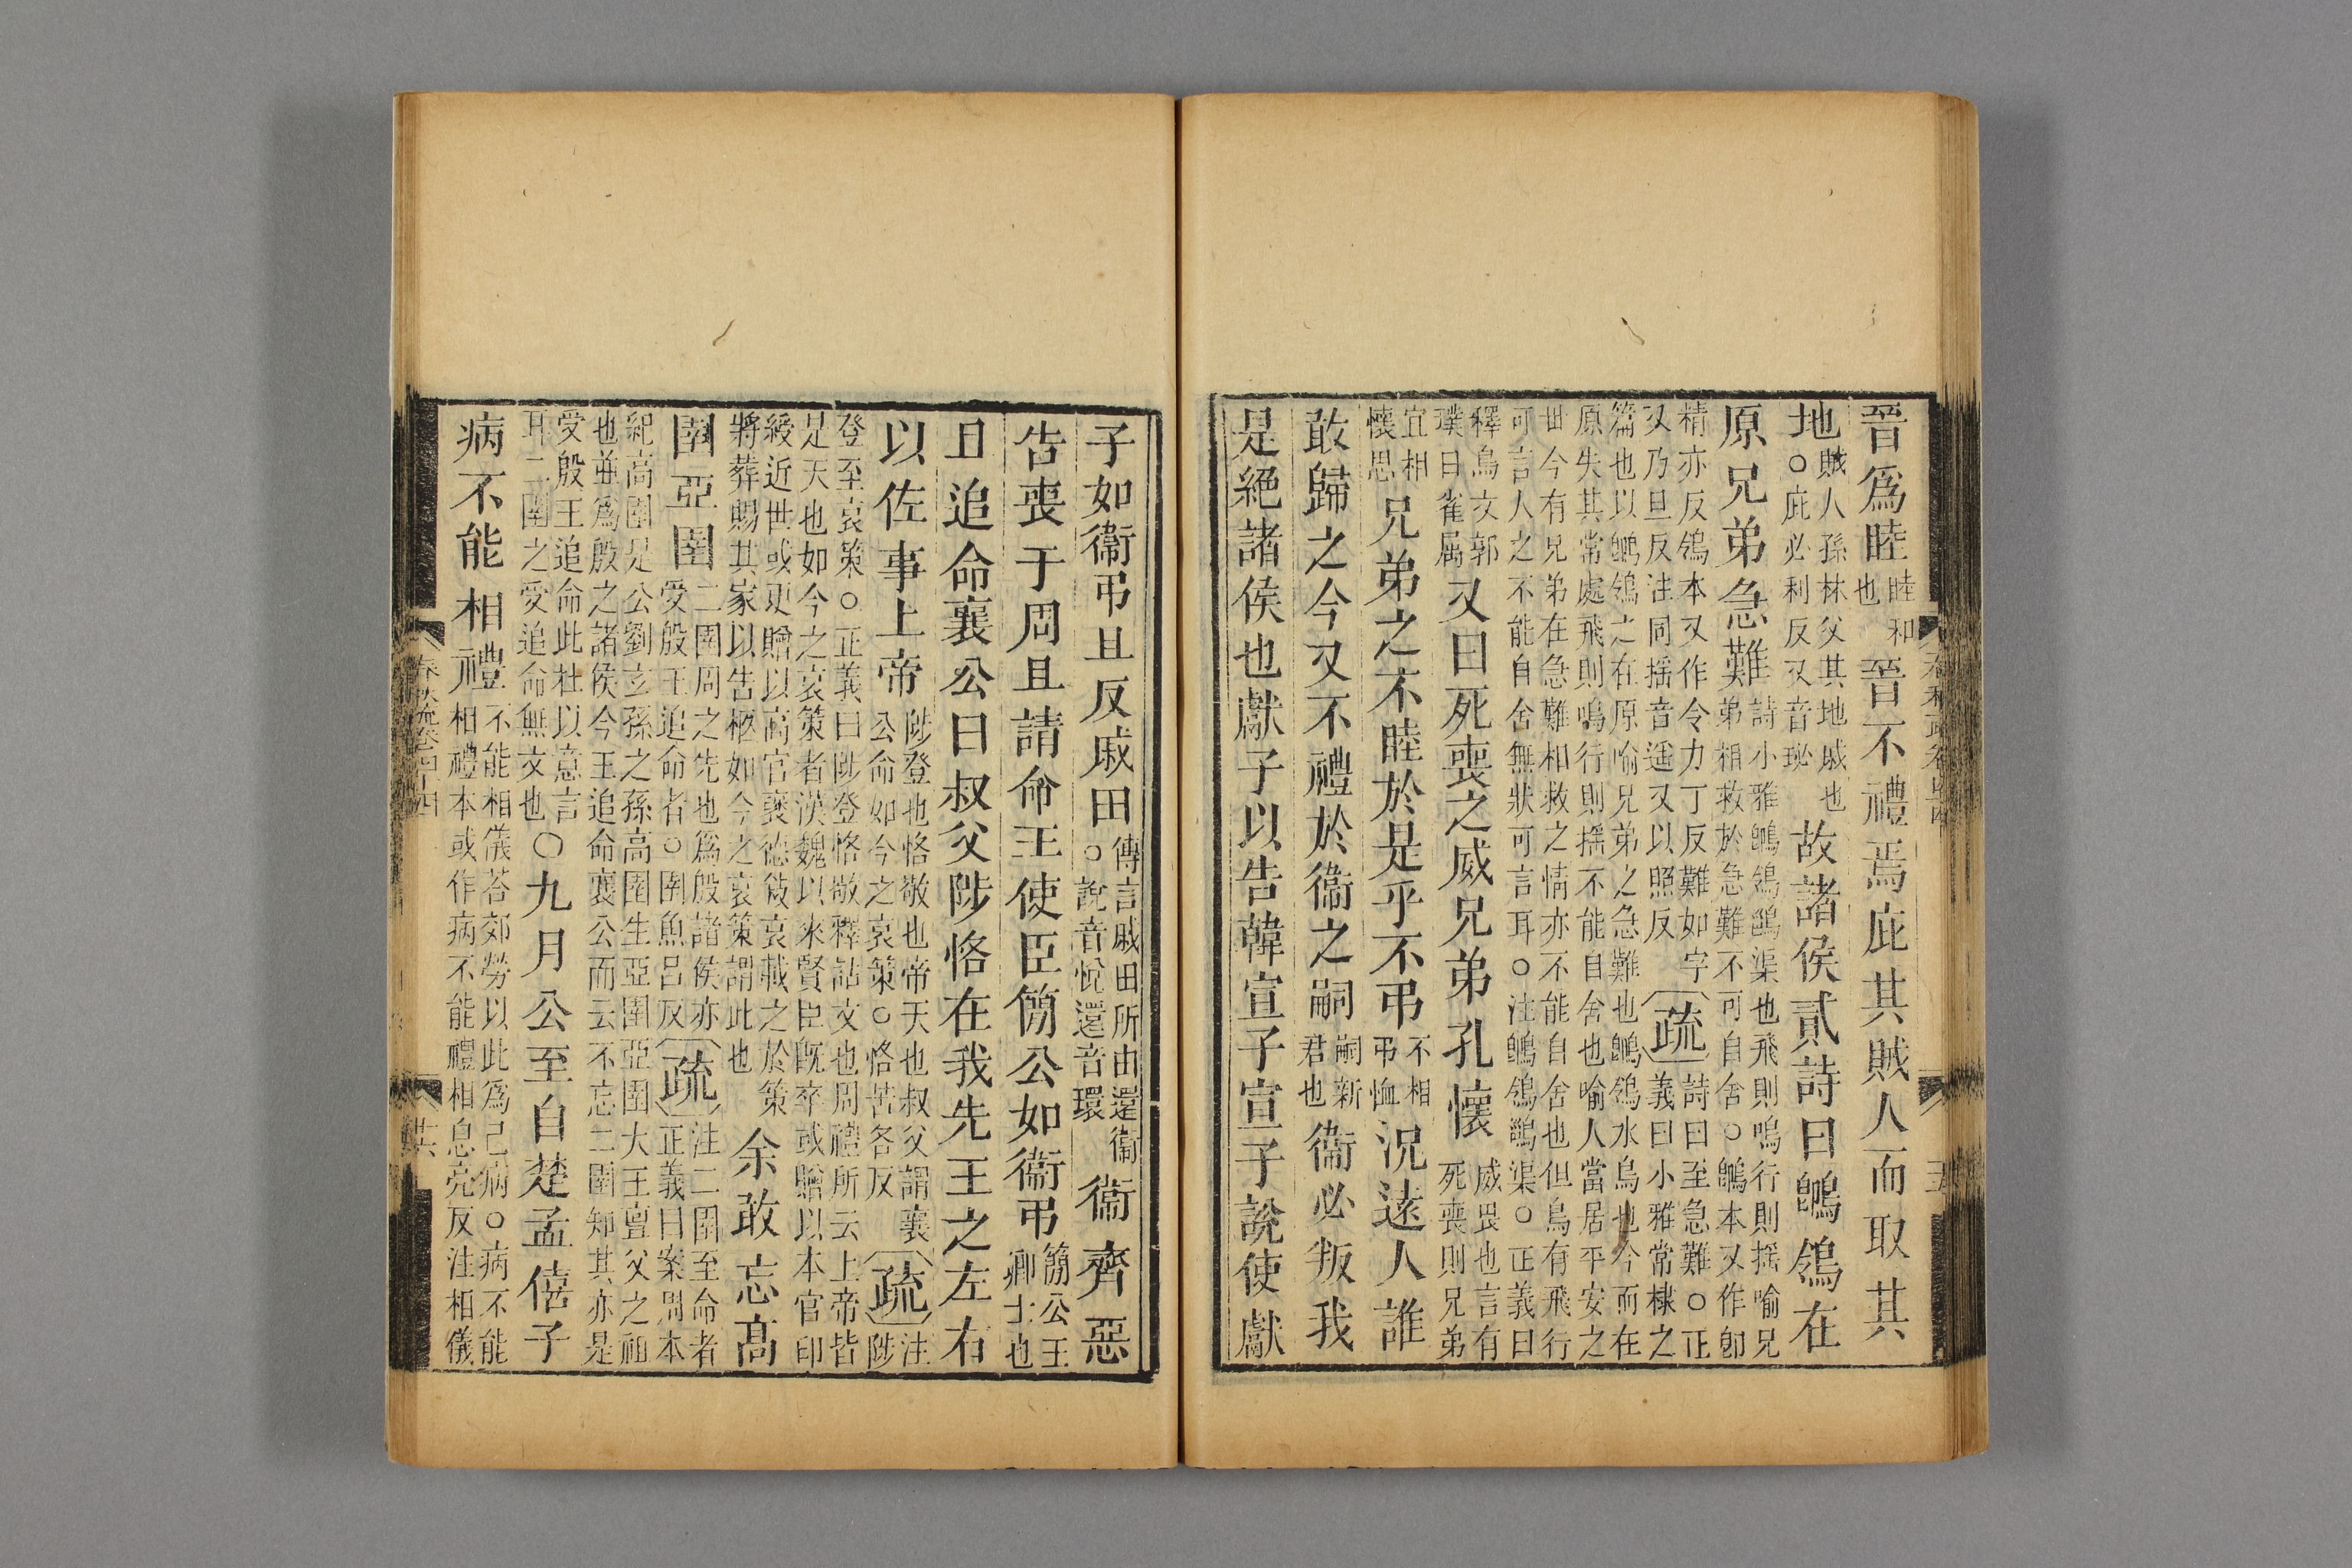 晉爲睦睦和也晉不禮焉庇其賊人而取其
地賊人孫林父其地戚也○庇必利反又音祕故諸侯貳詩曰鶺鴒在
原兄弟急難詩小雅鶺鴒鶺渠也飛則鳴行則揺喻兄弟相救於急難不可自舍○鶺本又作卽
精亦反鴒本又作令力丁反難如字又乃旦反注同揺音遥又以照反疏詩曰至急難○正義曰小雅常棣之
篇也以鶺鴒之在原喻兄弟之急難也鶺鴒水鳥也今而在原失其常處飛則鳴行則揺不能自舍也喻人當居平安之
世今有兄弟在急難相救之情亦不能自舍也但鳥有飛行可言人之不能自舍無狀可言耳○注鶺鴒鶺渠○正義曰
釋鳥文郭璞曰雀属又曰死喪之威兄弟孔懷威畏也言有死喪則兄弟
宜相懷思兄弟之不睦於是乎不弔不相弔恤況遠人誰
敢歸之今又不禮於衞之嗣嗣新君也衞必叛我
是絕諸侯也獻子以告韓宣子宣子說使獻
子如衞弔且反戚田傳言戚田所由還衞○說音悅還音環衞齊惡
告喪于周且請命王使臣簡公如衞弔簡公王卿士也
且追命襄公曰叔父陟恪在我先王之左右
以佐事上帝陟登也恪敬也帝天也叔父謂襄公命如今之哀策○恪苦各反疏注陟
登至哀策○正義曰陟登恪敬釋詁文也周禮所云上帝皆是天也如今之哀策者漢魏以來賢臣旣卒或贈以本官印
綬近世或更贈以高官襃德敘哀載之於策將葬賜其家以告柩如今之哀策謂此也余敢忘高
圉亞圉二圉周之先也爲殷諸侯亦受殷王追命者○圉魚呂反疏注二圉至命者正義曰案周本
紀高圉是公劉玄孫之孫高圉生亞圉亞圉大王亶父之祖也並爲殷之諸侯今王追命襄公而云不忘二圉知其亦是
受殷王追命此杜以意言耳二圉之受追命無文也○九月公至自楚孟僖子
病不能相禮不能相儀荅郊勞以此爲己病○病不能相禮本或作病不能禮相息亮反注相儀